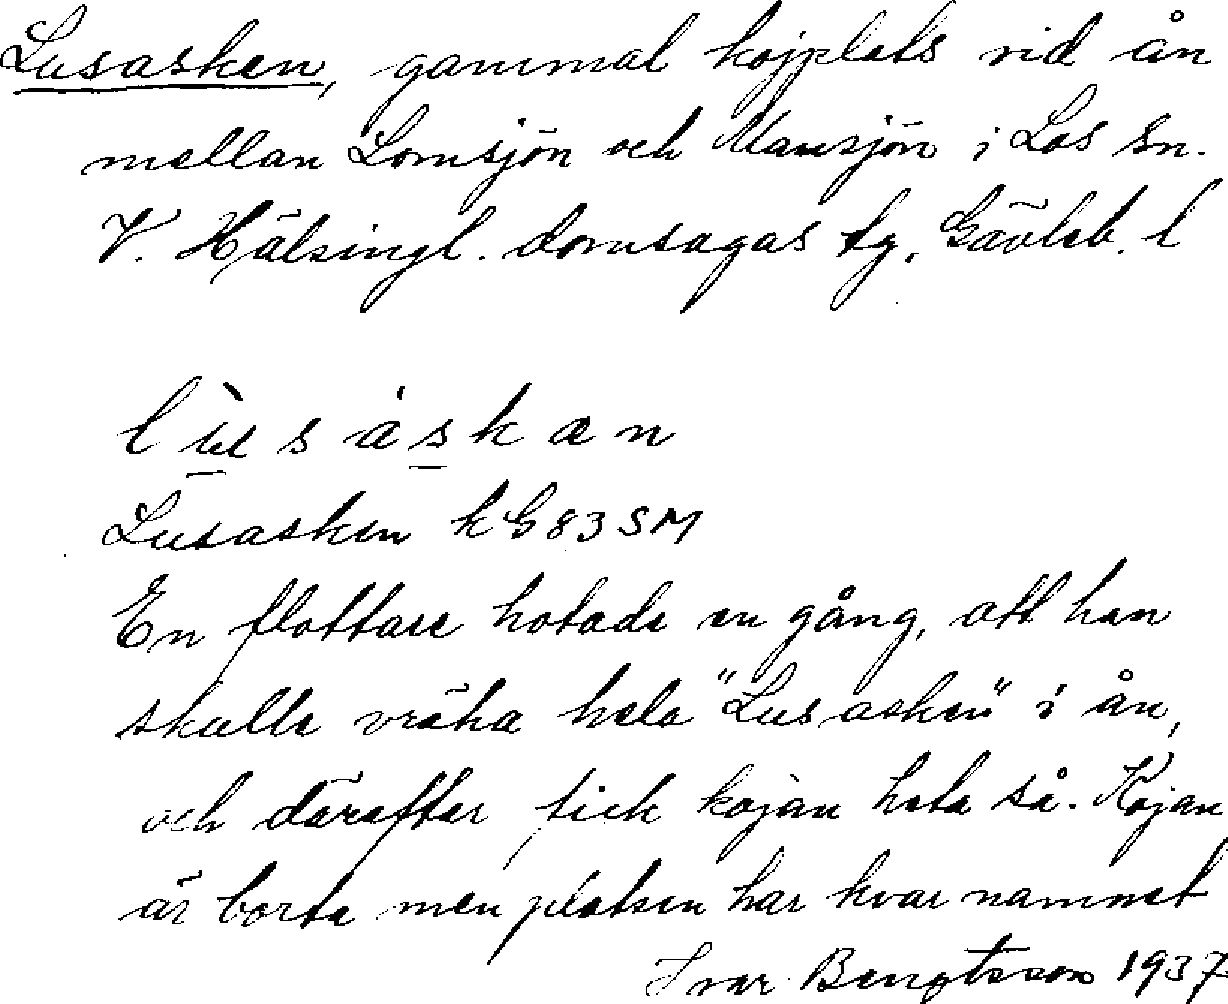 Lusasken, gammal kojplats vid ån
mellan Lomsjön och Mansjön i Los sn.
V. Hälsingl. domsagas tg, Gävleb. l
lùsáskan
Lusasken kG83SM
En flottare hotade en gång, att han
skulle vräka hela "Lusasken" i ån,
och därefter fick kojan heta så. Kojan
är borta men platsen har kvar namnet
Ivar Bengtsson 1937